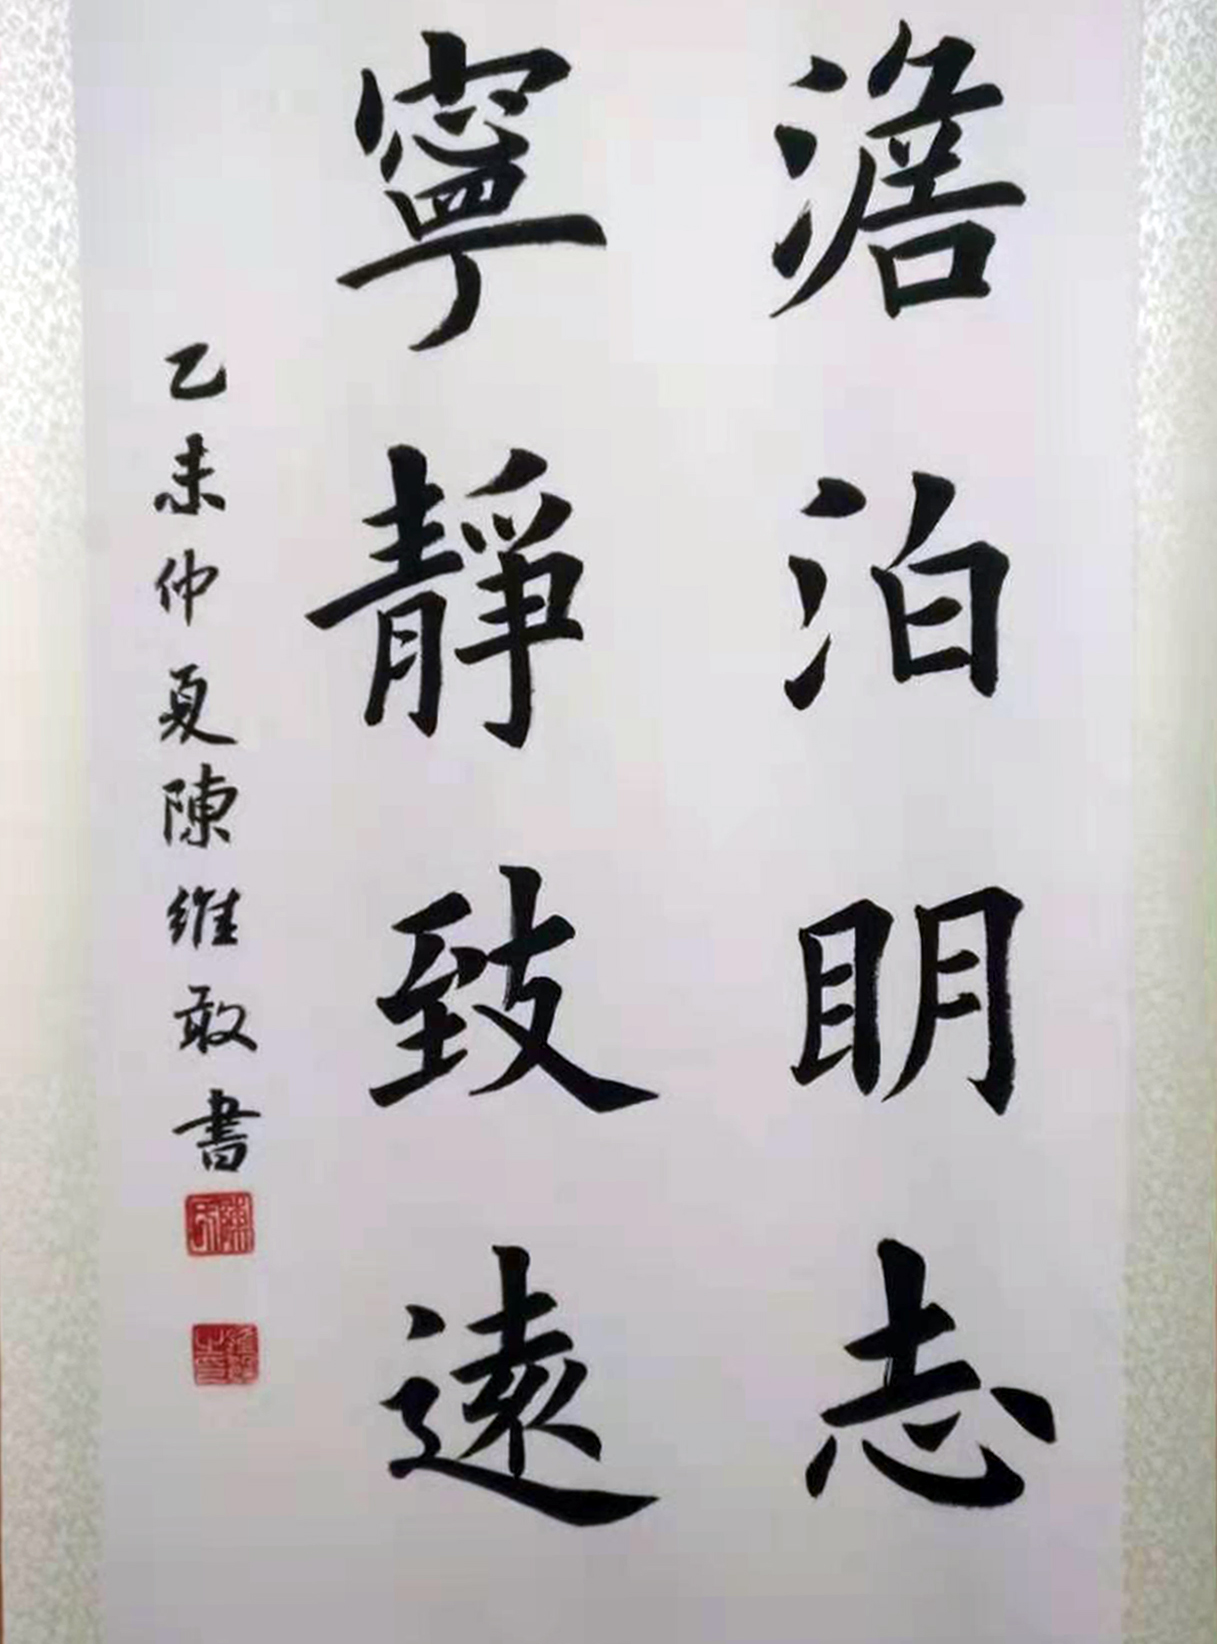 澹泊明志
寧靜致遠
乙未仲夏陳維敢書